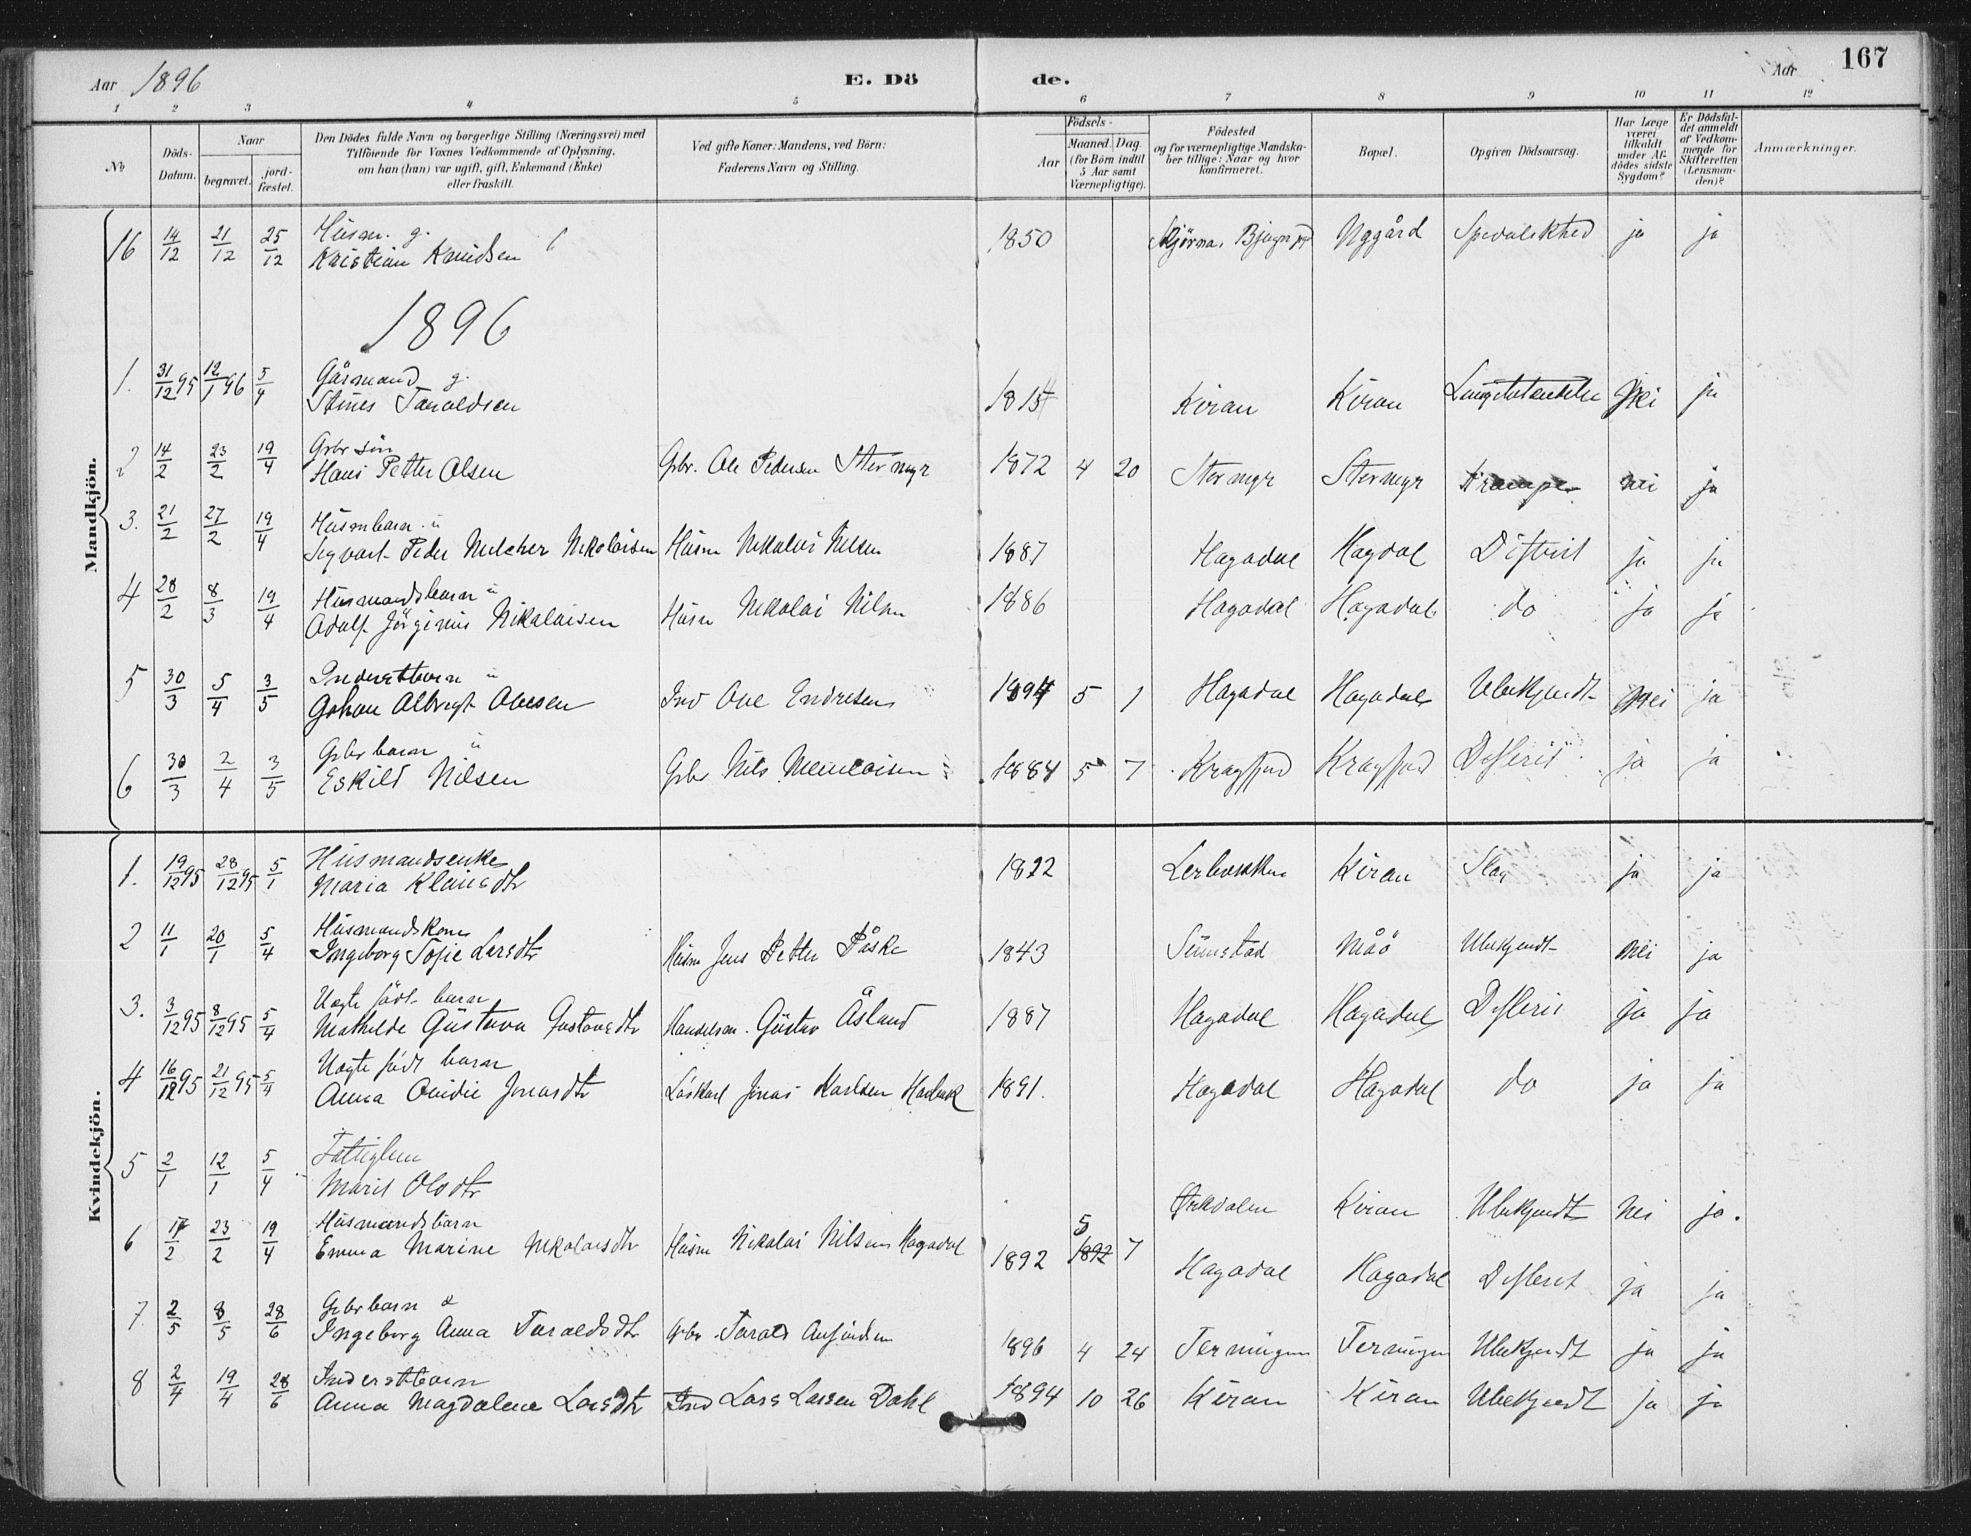 167
Aar 1896 E. Dö de. Aar
1 2 3 4 5 6 7 8 9 10 11 12
No Döds-Datum. Naar begravet. jord-fæstet. Den Dödes fulde Navn og borgerlige Stilling (Næringsvei) med Tilföiende for Voxnes Vedkommende af Oplysning, om han (hun) var ugift, gift, Enkemand (Enke) eller fraskilt. Ved gifte Koner: Mandens, ved Börn: Faderens Navn og Stilling. Aar Födsels- Maaned. Dag. (for Börn indtil 5 Aar samt Værnepligtige). Födested og for værnepligtige Mandska-ber tillige: Naar og hvor konfirmeret. Bopæl. Opgiven Dödsaarsag. Har Læge været tilkaldt under Af-dödes sidste Sygdom? Er Dödsfal-det anmeldt af Vedkom-mende for Skifteretten (Lensman-den)? Anmærkninger.
Mandkjön.
16 14/12 21/12 25/12 Husm. g. Kristian Knudsen 1850 Bjugn Spedalskhed ja ja
1896
1. 31/12 95 12/1 96 5/4 Gårmand g. Taraldsen 1815 Kiran Kiran nei ja
2 14/2 23/2 19/4 Gbr søn Hans Petter Olsen Gbr. Ole Pedersen Stermyr 1872 4 20 Stermyr Stermyr Krampe nei ja
3. 21/2 27/2 19/4 Husmbarn Peder Melcher Nikolaisen Husm Nikolai Nilsen 1887 Hagadal Hagdal Difterit ja ja
4 28/2 8/3 19/4 Husmandsbarn Adolf Jörginus Nikolaisen Husm Nikolai Nilsen 1886 Hagadal Hagadal do ja ja
5 30/3 5/4 3/5 Inderstbarn Johan Albregt Ovesen Ind Ove Endresen 1894 5 1 Hagadal Hagadal Ubekjendt nei ja
6 30/3 2/4 3/5 Gbr barn Eskild Nilsen Gbr Nils 1884 5 7 Kragfjord Kragfjord Difterit ja ja
Kvindekjön.
1. 19/12 95 28/12 95 5/1 Husmandsenke Maria Klausdtr 1822 Lerbækken Kiran Slag ja ja
2 11/1 20/1 5/4 Husmandskone Ingeborg Sofie Larsdtr Husm Jens Petter Påske 1843 Sumstad Måö Ubekjendt nei ja
3. 3/12 95 8/12 95 5/4 Uegte født barn Mathilde Gustava Gustavsdtr Handelsm. Gustav Åsland 1887 Hagadal Hagadal Difteri ja ja
4 16/12 95 21/12 95 5/4 Uegte født barn Anna Ovidie Jonasdtr Löskarl Jonas Karlsen 1891. Hagadal Hagadal do ja ja
5 2/1 12/1 5/4 Fattiglem Marit Olsdtr Ørkdalen Kiran Ubekjendt nei ja.
6 17/2 23/2 19/4 Husmandsbarn Emma Marine Nikolaisdtr Husm Nikolai Nilsen Hagadal 1892 5 1892 7 Hagadal Hagadal Difterit ja ja
7. 2/5 8/5 28/6 Gbr barn Ingeborg Anna Taraldsdtr Gbr Tarald 1896 4 24 Terningen Terningen Ubekjendt ja ja
8 2/4 19/4 28/6 Inderstbarn Anna Magdalene Larsdtr Ind Lars Larsen Dahl 1894 10 26 Kiran Kiran Ubekjendt ja ja